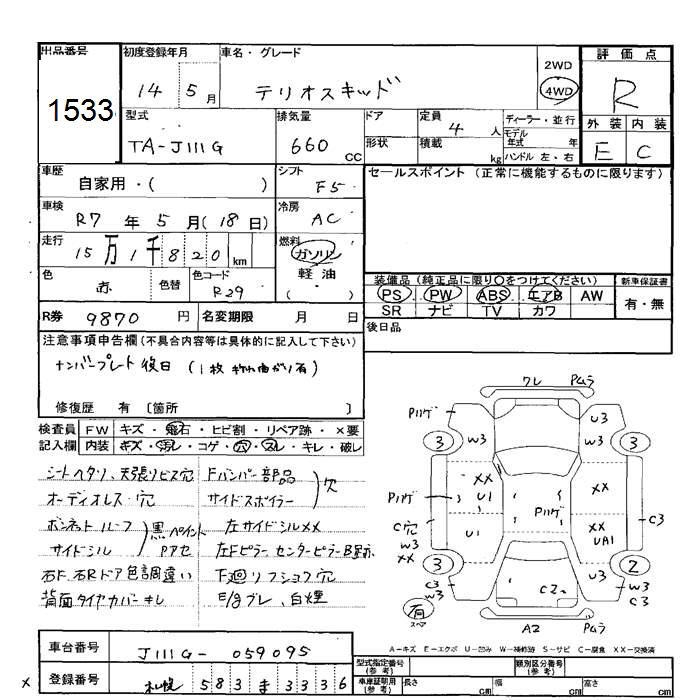 出品番号 初度登録年月 車名・グレード 2WD 評価点
1533 14 5月 テリオスキッド 4WD R
型式 排気量 ドア 定員 ディーラー・並行 外装 内装
TA-J111G 660 CC 形状 4人 積載 kg モデル年式 年 ハンドル 左・右 E C
車歴 シフト セールスポイント (正常に機能するものに限ります)
自家用・( ) F5
車検 冷房
R7年 5月(18日) AC
走行 燃料
15万1千820km ガソリン
軽油
( )
色 色替 色コード
赤 R29
装備品(純正品に限り〇をつけてください) 新車保証書
PS PW ABS エアB AW 有・無
SR ナビ TV カワ
R券 9870円 名変期限 月 日
後日品
注意事項申告欄(不具合内容等は具体的に記入して下さい)
ナンバープレート後日(1枚折れ曲がり有)
修復歴 有 〔箇所 〕
検査員 FW キズ・飛石・ヒビ割・リペア跡・×要
記入欄 内装 キズ・汚レ・コゲ・穴・スレ・キレ・破レ
シートヘタリ、天張リビス穴
オーディオレス・穴
ボンネット ルーフ
サイドシル
黒ペイント
Pアセ
右F.右Rドア色調違い
背面タイヤカバーキレ
Fバンパー部品
サイドスポイラー
欠
左サイドシルXX
左Fピラーセンターピラー
下廻リフショク穴
E/gブレ、白煙
ワレ Pムラ
Pハゲ U3
3 W3 W3 3
XX
U1 XX
Pハゲ Pハゲ
C穴 W3 XX U1 XX UA1 C3
3 2
C3 W3 C2 U3 W3 C3
有 スペア A2 Pムラ
A-キズ E-エクボ U-凹み W-補修跡 S-サビ C-腐食 XX-交換済
車台番号 J111G-059095
登録番号 札幌 583 ま 3336
×
型式指定番号(参考) 類別区分番号(参考)
車庫証明用(参考) 長さ cm 幅 cm 高さ cm